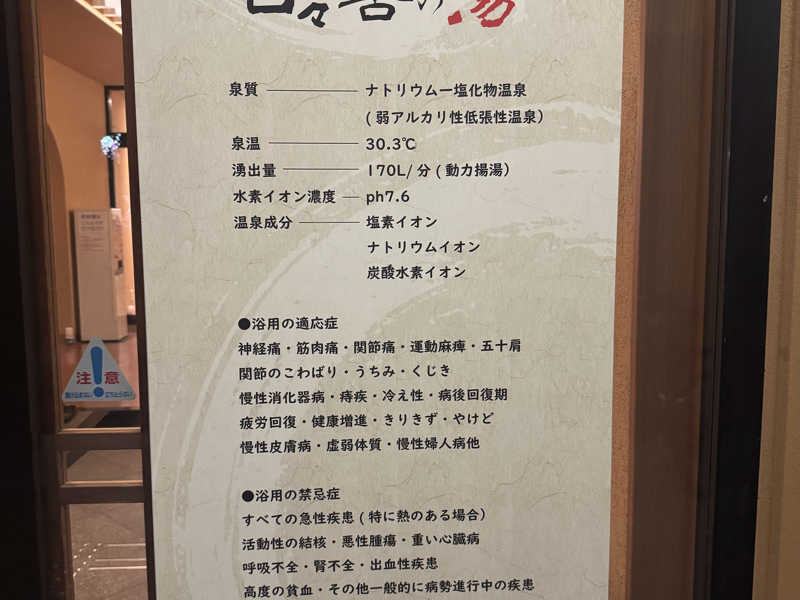 湯
泉質 ナトリウムー塩化物温泉
(弱アルカリ性低張性温泉)
泉温 30.3℃
湧出量 170L/分(動力揚湯)
水素イオン濃度 ph7.6
温泉成分 塩素イオン
ナトリウムイオン
炭酸水素イオン
●浴用の適応症
神経痛・筋肉痛・関節痛・運動麻痺・五十肩
関節のこわばり・うちみ・くじき
慢性消化器病・痔疾・冷え性・病後回復期
疲労回復・健康増進・きりきず・やけど
慢性皮膚病・虚弱体質・慢性婦人病他
●浴用の禁忌症
すべての急性疾患(特に熱のある場合)
活動性の結核・悪性腫瘍・重い心臓病
呼吸不全・腎不全・出血性疾患
高度の貧血・その他一般的に病勢進行中の疾患
注意